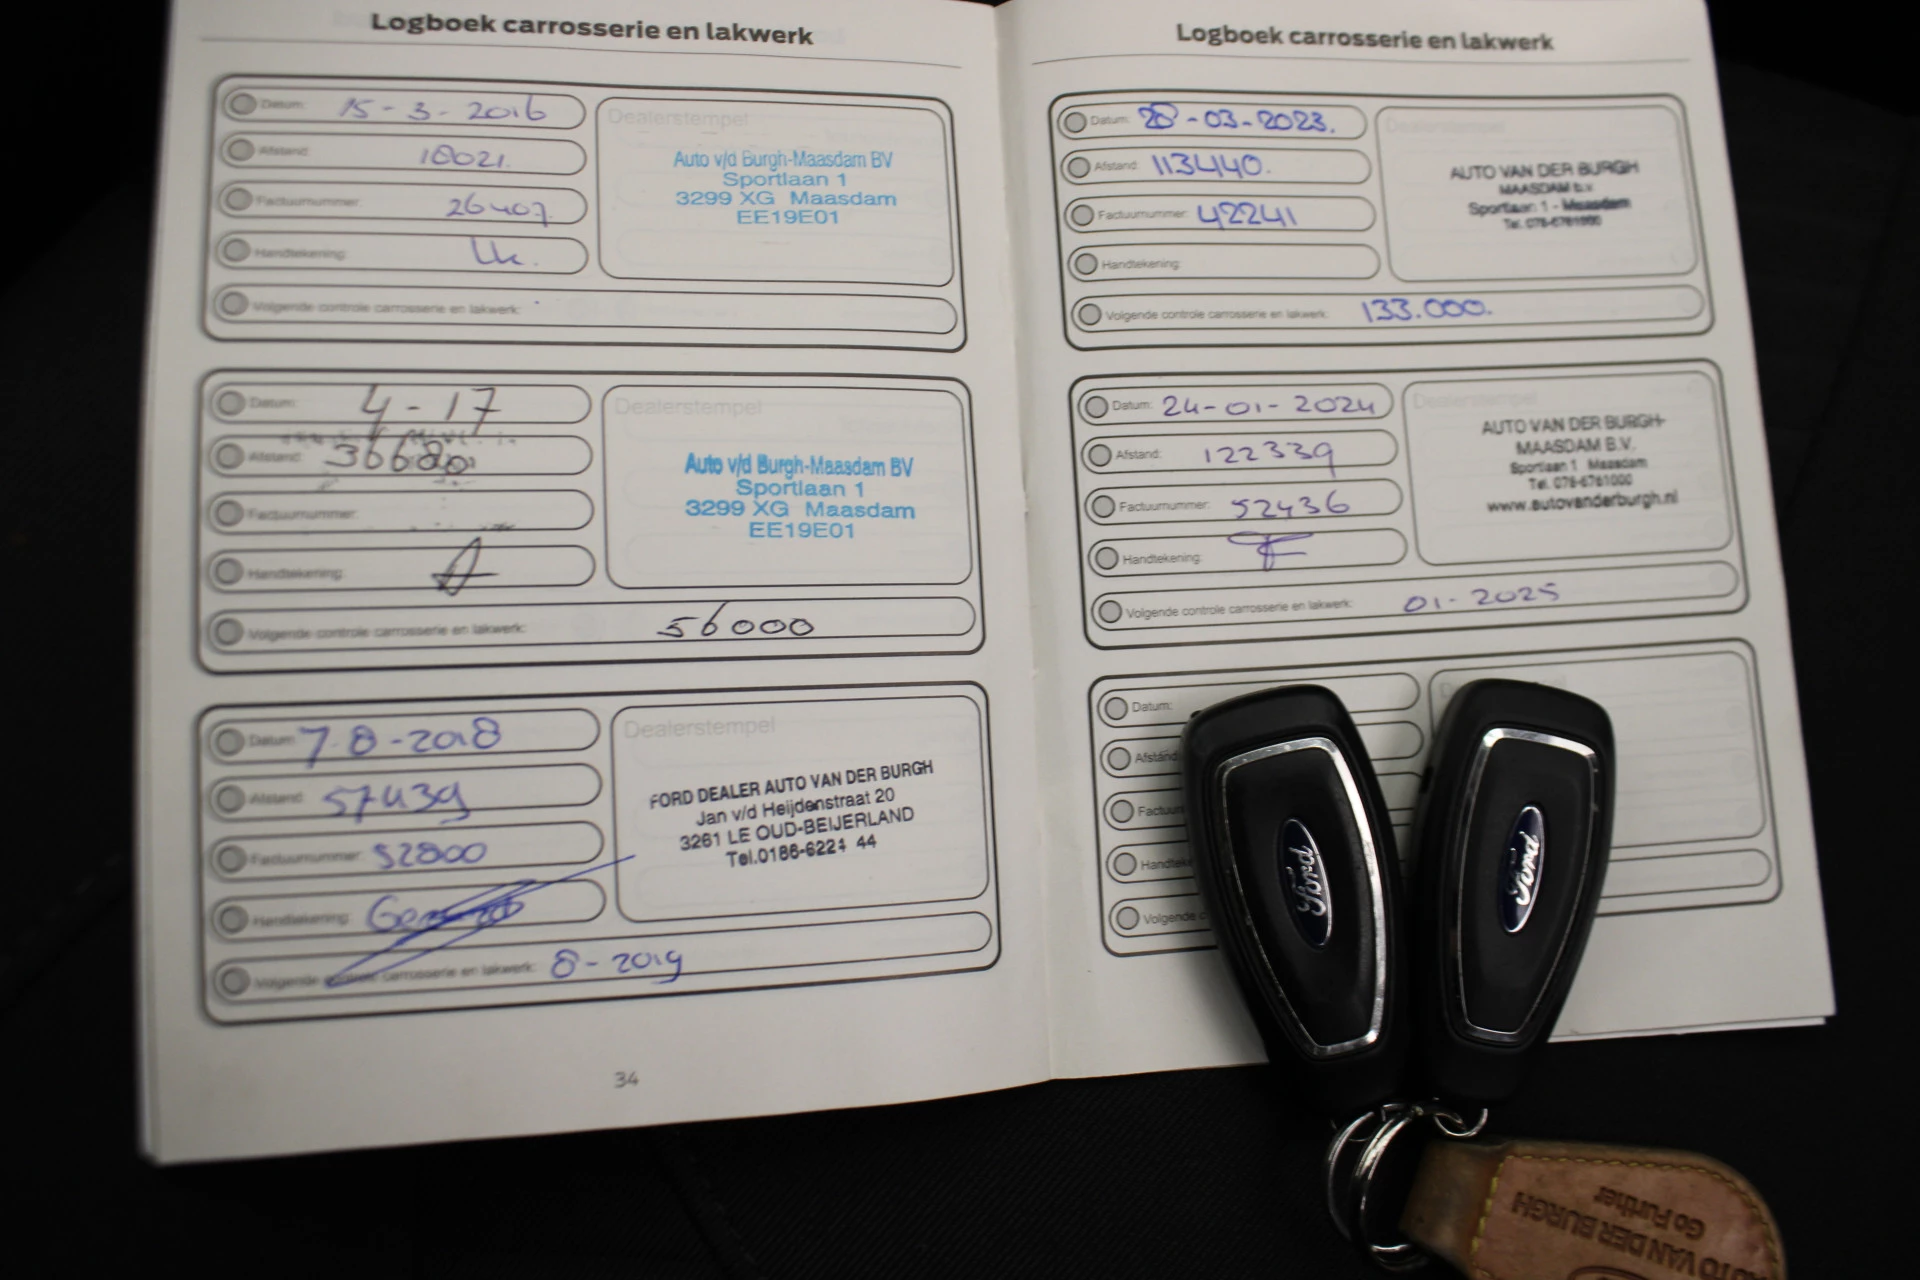 Logboek carrosserie en lakwerk
Datum: 15-3-2016
Afstand: 18021.
Factuurnummer: 26407
Handtekening:
Volgende controle carrosserie en lakwerk:
Dealerstempel
Auto v/d Burgh-Maasdam BV
Sportlaan 1
3299 XG Maasdam
EE19E01
Datum: 4-17
Afstand: 36680
Factuurnummer:
Handtekening:
Volgende controle carrosserie en lakwerk: 56000
Dealerstempel
Auto v/d Burgh-Maasdam BV
Sportlaan 1
3299 XG Maasdam
EE19E01
Datum: 7-8-2018
Afstand: 57439
Factuurnummer: 52800
Handtekening:
Volgende controle carrosserie en lakwerk: 8-2019
Dealerstempel
FORD DEALER AUTO VAN DER BURGH
Jan v/d Heijdenstraat 20
3261 LE OUD-BEIJERLAND
Tel.0186-6221 44
34
Logboek carrosserie en lakwerk
Datum: 28-03-2023.
Afstand: 113440.
Factuurnummer: 42241
Handtekening:
Volgende controle carrosserie en lakwerk: 133.000.
Dealerstempel
AUTO VAN DER BURGH
MAASDAM b.v.
Sportlaan 1 - Maasdam
Tel. 078-6761000
Datum: 24-01-2024
Afstand: 122339
Factuurnummer: 52436
Handtekening:
Volgende controle carrosserie en lakwerk: 01-2025
Dealerstempel
AUTO VAN DER BURGH-
MAASDAM B.V.
Sportlaan 1 Maasdam
Tel. 078-6761000
www.autovanderburgh.nl
Datum:
Afstand
Factuur
Handteke
Volgende c
Ford
Ford
AUTO VAN DER BURGH
Go Further